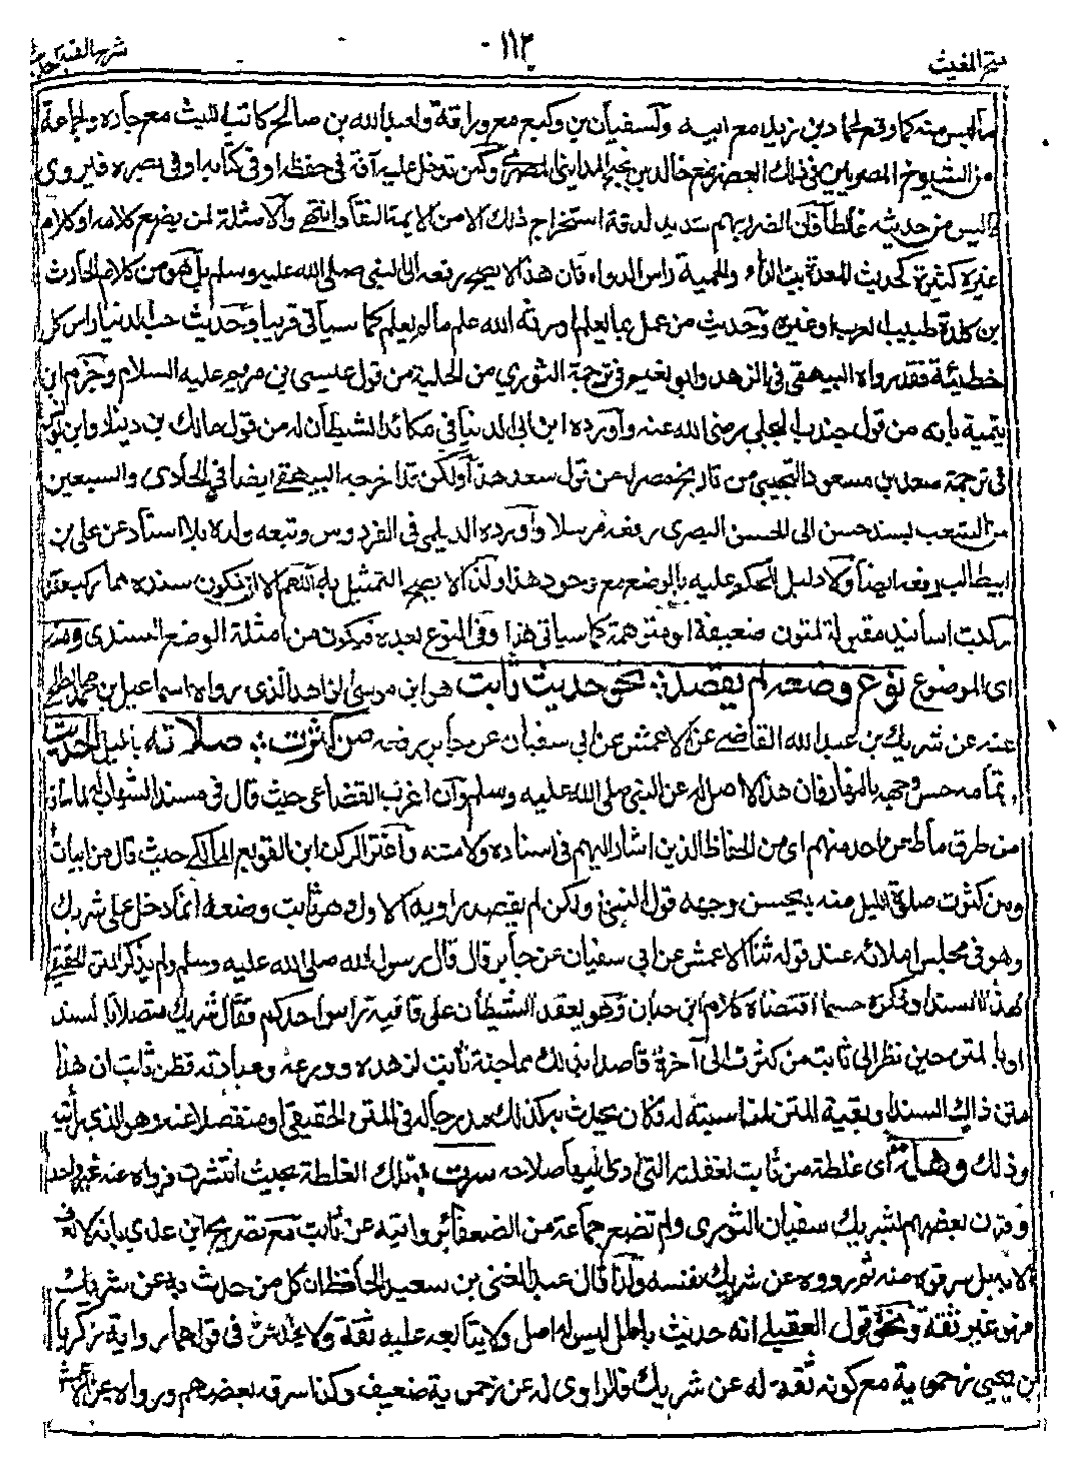 فتح المغيث
١١٢
شرح الفية
ما ليس منه كما وقع لحماد بن زيد مع ابيه ولسفيان بن وكيع مع وراقه ولعبد الله بن صالح كاتب الليث مع جاره ولجماعة
من الشيوخ المصريين في ذلك العصر مع خالد بن نجيح المدايني المصري وكمن تدخل عليه آفة في حفظه او في كتابه او في بصره فيروي
ما ليس من حديثه غالطا فان الضرر بهم شديد لدقة استخراج ذلك الا من الايمة النقاد انتهى والامثلة لمن يضع كلامه او كلام
غيره كثيرة كحديث المعدة بيت الداء والحمية راس الدواء فان هذا لا يصح رفعه الى النبي صلى الله عليه وسلم بل هو من كلام الحارث
بن كلدة طبيب العرب او غيره وحديث من عمل بما يعلم اورثه الله علم ما لم يعلم كما سياتي قريبا وحديث حب الدنيا راس كل
خطيئة فقد رواه البيهقي في الزهد وابو نعيم في ترجمة الثوري من الحلية من قول عيسى بن مريم عليه السلام وجزم ابن
تيمية بانه من قول جندب البجلي رضي الله عنه واورده ابن ابي الدنيا في مكائد الشيطان له من قول مالك بن دينار وابن يونس
في ترجمة سعد بن مسعود التجيبي من تاريخ مصر له من قول سعد هذا ولكن قد اخرجه البيهقي ايضا في الحادي والسبعين
من الشعب بسند حسن الى الحسن البصري رفعه مرسلا واورده الديلمي في الفردوس وتبعه ولده بلا اسناد عن علي بن
ابيطالب رفعه ايضا ولا دليل للحكم عليه بالوضع مع وجود هذا ولذا لا يصح التمثيل به اللهم الا ان يكون سنده مما ركب فقد
ركبت اسانيد مقبولة لمتون ضعيفة او متوهمة كما سياتي هذا وفي النوع بعده فيكون من امثلة الوضع السندي ومنه
اى الموضوع نوع وضعه لم يقصد: نحو حديث ثابت هو ابن موسى الزاهد الذي رواه اسماعيل بن محمد الطلحي
عنه عن شريك بن عبد الله القاضي عن الاعمش عن ابي سفيان عن جابر رفعه من كثرت: صلاته بالليل الحديث
تمامه حسن وجهه بالنهار فان هذا لا اصل له عن النبي صلى الله عليه وسلم وان اغرب القضاعي حيث قال في مسند الشهاب له لما ساقه
من طرق ما طعن احد منهم اى من الحفاظ الذين اشار اليهم في اسناده ولا متنه واغتر الركن ابن القوبع المالكي حيث قال من ابيات
ومن كثرت صلوة الليل منه يحسن وجهه قول النبي ولكن لم يقصد راويه الاول وهو ثابت وضعه انما دخل على شريك
وهو في مجلس املائه عند قوله ثنا الاعمش عن ابي سفيان عن جابر قال قال رسول الله صلى الله عليه وسلم ولم يذكر المتن الحقيقي
لهذا السند او ذكره حسبما اقتضاه كلام ابن حبان وهو يعقد الشيطان على قافية راس احدكم فقال شريك متصلا بالسند
او بالمتن حين نظر الى ثابت من كثرت الى آخره قاصدا بذلك مماجنة ثابت لزهده وورعه وعبادته فظن ثابت ان هذا
متن ذلك السند او بقية المتن لمناسبته له فكان يحدث به كذلك مدرجا له في المتن الحقيقي او منفصلا عنه وهو الذي رأيته
وذلك وهلة اى غلطة من ثابت لغفلته التي ادى اليها صلاحه سرت بتلك الغلطة بحيث انتشرت فرواه عنه غير واحد
وقرن بعضهم لشريك سفيان الثوري ولم تضع جماعة من الضعفاء روايته عن ثابت مع تصريح ابن عدي بانه لا يعرف
الا به بل سرقوه منه ثم رووه عن شريك نفسه ولذا قال عبد الغني بن سعيد الحافظ ان كل من حدث به عن شريك
فهو غير ثقة ونحوه قول العقيلي انه حديث باطل ليس له اصل ولا يتابعه عليه ثقة ولا يخدش في قولهما رواية زكريا
بن يحيى زحمويه مع كونه ثقة له عن شريك فالراوي له عن زحمويه ضعيف وكذا سرقه بعضهم ورواه عن الاعمش